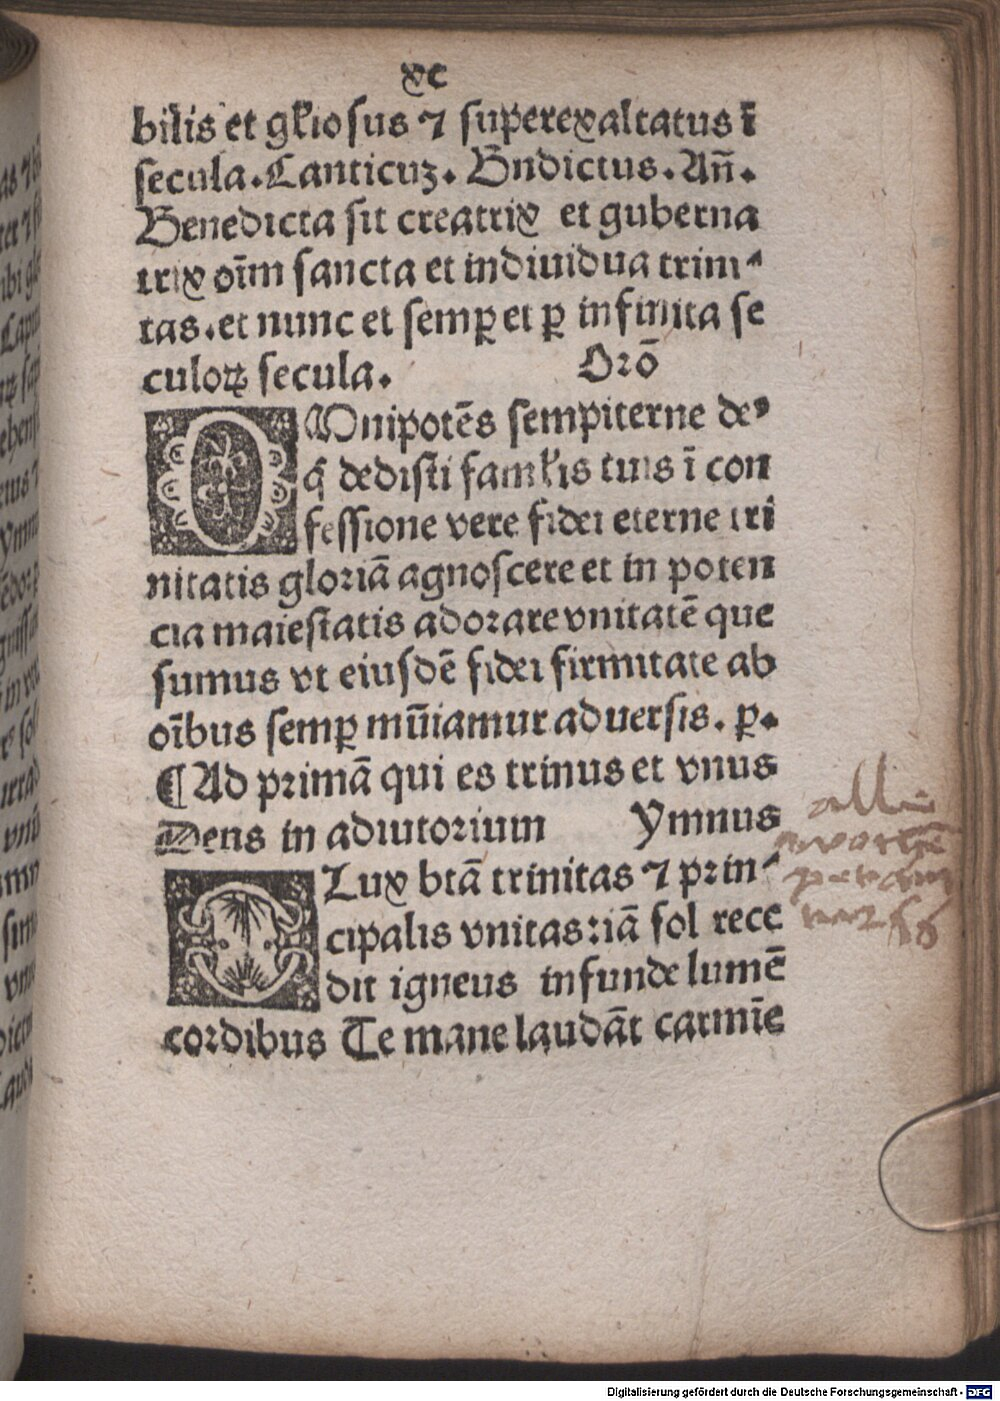 xc
bilis et glꝛiosus ⁊ superexaltatus ī
secula. Canticuʒ. Bn̄dictus. Añ.
Benedicta sit creatrix et guberna
trix oīm sancta et indiuidua trini⸗
tas. et nunc et semꝑ et ꝑ infinita se
culoꝝ secula. Orō
OMnipotēs sempiterne deꝰ
q̄ dedisti famĺis tuis ī con
fessione vere fidei eterne tri
nitatis gloriā agnoscere et in poten
cia maiestatis adorare vnitatē que
sumus vt eiusdē fidei firmitate ab
oībus semꝑ mūiamur aduersis. ꝑ.
¶ Ad primā qui es trinus et vnus
Deus in adiutorium Ymnus
O Lux btā trinitas ⁊ prin⸗
cipalis vnitas iā sol rece
dit igneus infunde lumē
cordibus Te mane laudāt carmīe
Digitalisierung gefördert durch die Deutsche Forschungsgemeinschaft - DFG